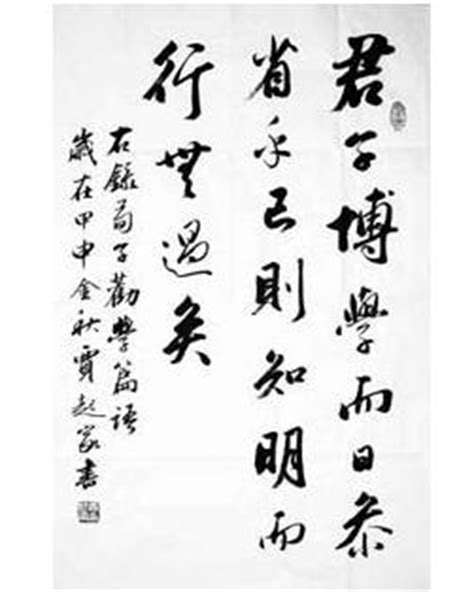 君子博學而日參
省乎己則知明而
行無過矣
右錄荀子勸學篇語
歲在甲申金秋賈起家書